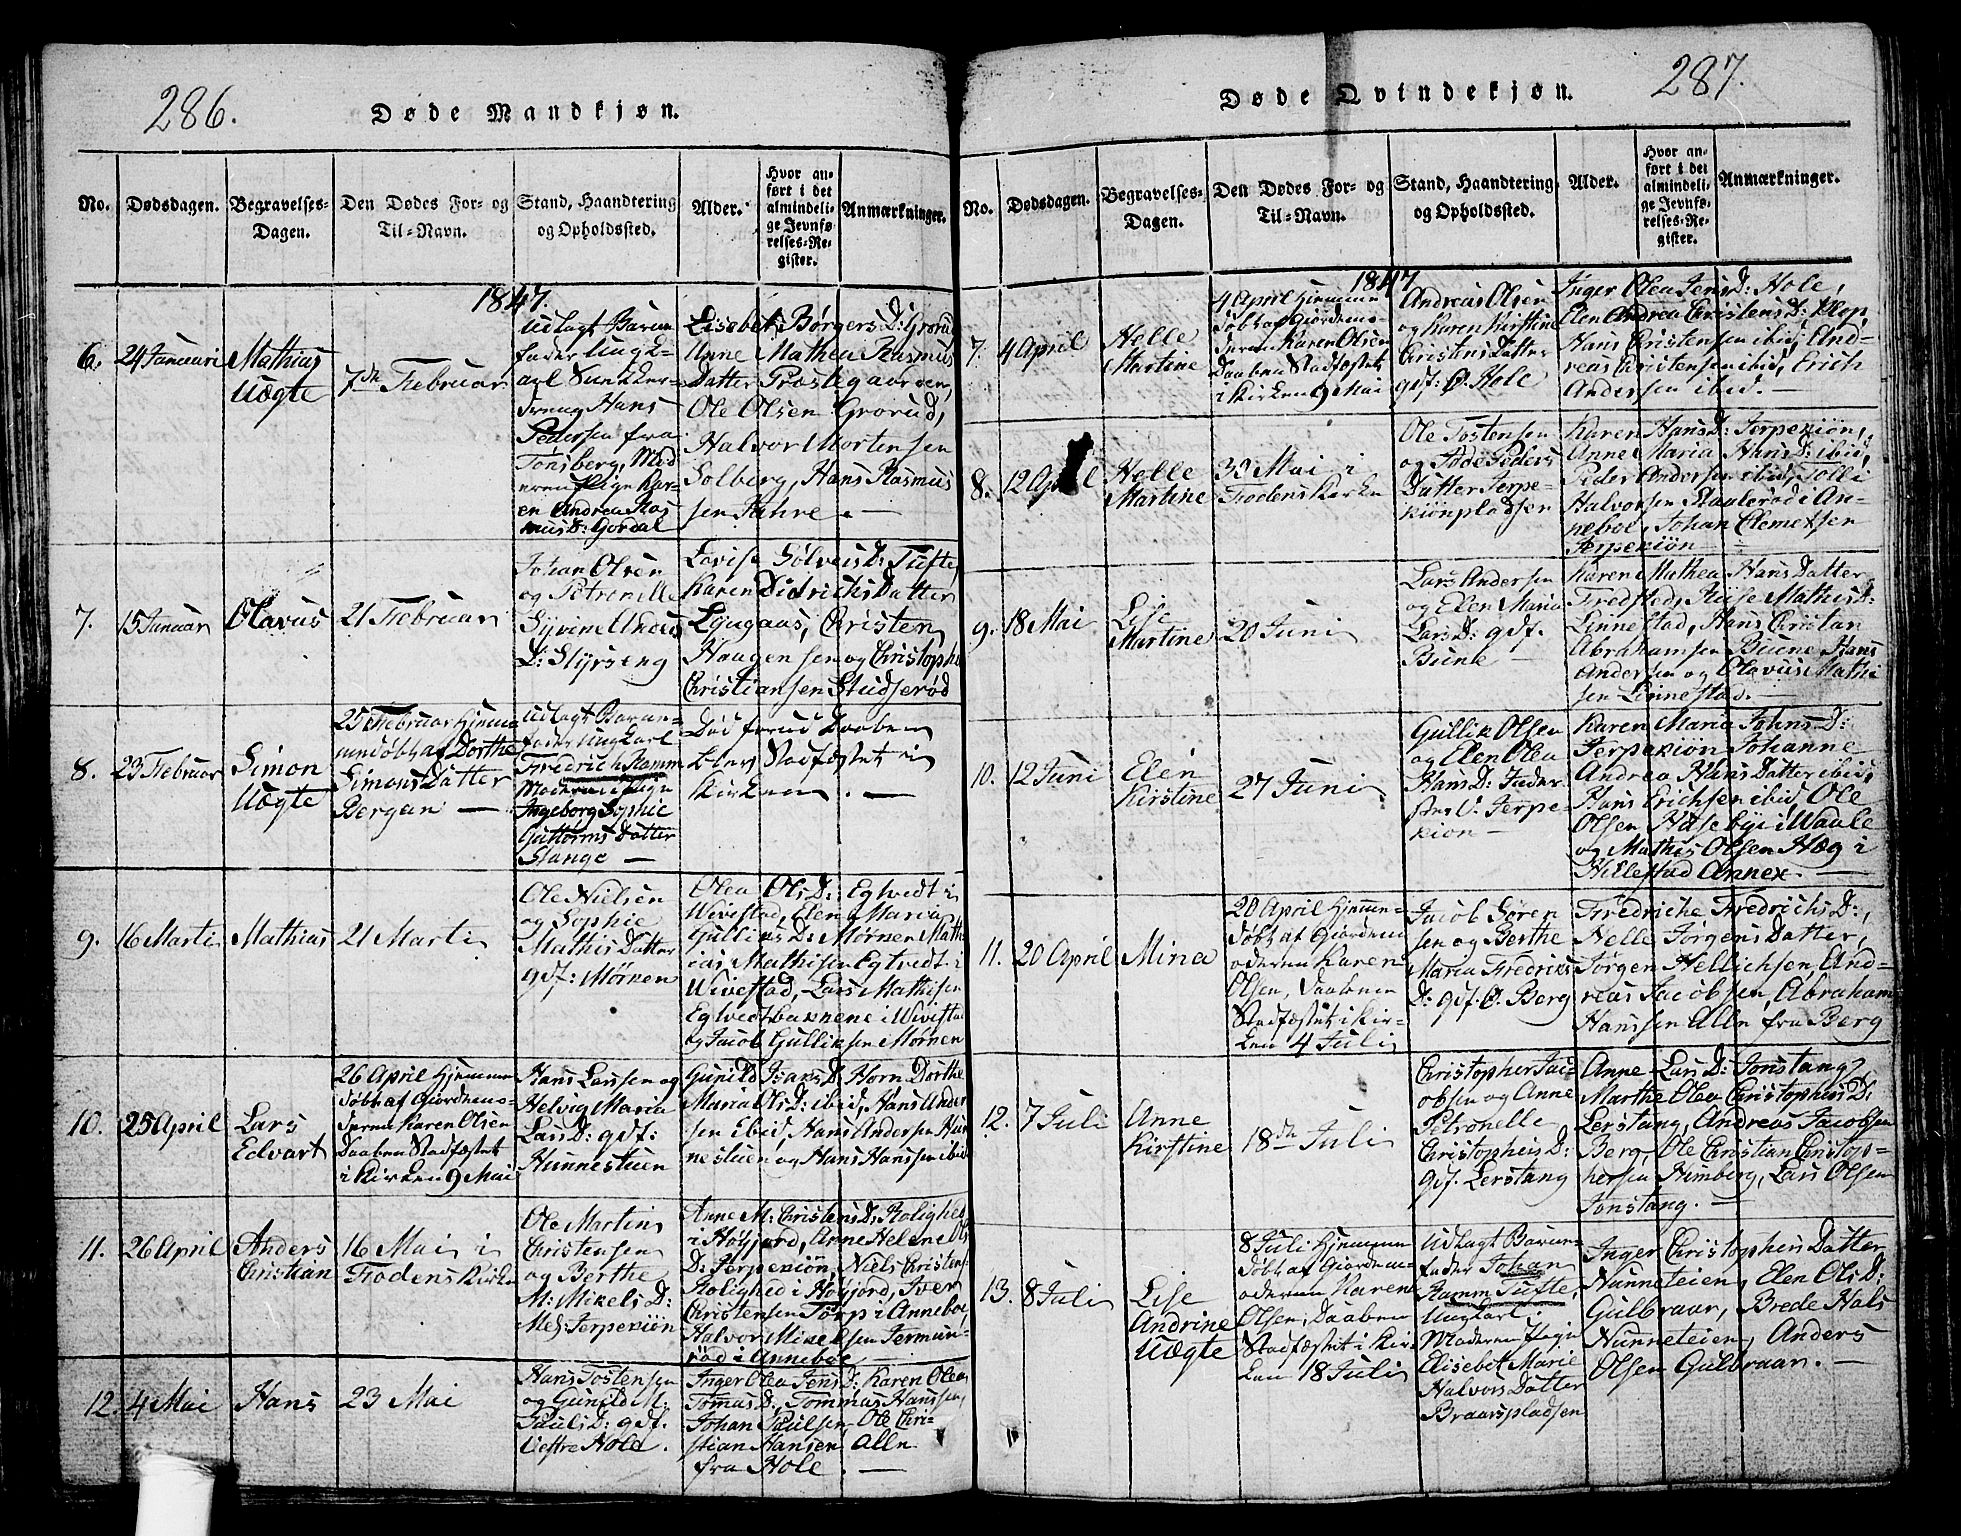 286.
Døde Mandkjøn.
No.
Dødsdagen.
Begravelses-
Dagen.
Den Dødes For- og
Til-Navn.
Stand, Haandtering
og Opholdssted.
Alder.
Hvor an-
ført i det
almindeli-
ge Jevnfø-
relses-Re-
gister.
Anmærkninger.
1847.
6.
24 Januari
Mathias
Uægte
7de Februar
Udlagt Barne
fader Ungk-
arl
dreng Hans
Pedersen fra
Tønsberg, Mod
eren Pige Kar-
en Andrea Ras
musD: Gordal
Lisebet BørgersD: Grorud
Anne Mathea Rasmus
Datter Præstegaarden,
Ole Olsen Grorud,
Halvor Mortensen
Solberg, Hans Rasmus
sen
7.
15 Januar
Olavus
21 Februar
Johan Olsen
og Petronelle
D: Slyrseng
Lovise SølvesD: Tufte,
Karen Didrichs Datter
Ljugaas, Christen
Haagensen og Christophe
Christiansen Studserød
8.
23 Februar
Simon
Uægte
25 Februar Hjemme
mdøbt af Dorthe
Simons Datter
Bergan —
Udlagt Barne-
fader Ungkarl
Fredrich Ramm
Moderen Pige
Ingeborg Sophie
Guttorms Datter
Stange —
Død forud Daaben
blev Stadfæstet i
Kirken. —
9.
16 Marti
Mathias
21 Marti
Ole Nielsen
og Sophie
Mathis Datter
gdf: Mørken
Olea OlsD: Egtvedt i
Wivestad, Elen Maria
GulliksD: Mørken Math
ias Mathisen Egtvedt i
Wivestad, Lars Mathisen
Egtvedtbakkene i Wivestad
og Jacob Gulliksen Mørken
10.
25 April
Lars
Edvart
26 April Hjemme
døbt af Giordemo-
deren Karen Olsen
Daaben Stadfæstet
i Kirken 9 Mai
Hans Larssen og
Helvig Maria
LarsD: gdf:
Hunnestuen
Gunild IsaksD Horn Dorthe
Maria OlsD: ibid, Hans Ander
sen Ibid Hans Andersen Hun
nestuen og Hans Hanssen ibid
11.
26 April
Anders
Christian
16 Mai i
Fodens Kirke
Ole Martin
Christensen
og Berthe
M: MikelsD:
Med: Jerpekiøn
Anne M: ChristensD: Rolighed
i Høyjord, Anne Helene Ols
D: Jerpekiøn, Niels Christens
Rolighed i Høyjord, Iver
Christensen Torp i Anneboe,
Halvor Mikelsen Jermun-
rød i Anneboe
12.
4 Mai
Hans
23 Mai
Hans Tostensen
og Gunild M:
PaulsD: gdf.
Vestre Hole.
Inger Olea JensD: Karen Olea
TomasD:, Tommas Hanssen,
Johan Paulsen, Ole Chri-
stian Hansen Alle
fra Hole. —
287.
Døde Qvindekjøn.
No.
Dødsdagen.
Begravelses-
Dagen.
Den Dødes For- og
Til-Navn.
Stand, Haandtering
og Opholdssted.
Alder.
Hvor an-
ført i det
almindeli-
ge Jevnfø-
relses-Re-
gister.
Anmærkninger.
1847
7.
4 April
Helle
Martine
4 April Hjemme
døbt af Giordemo-
deren Karen Olsen
Daaben Stadfæstet
i Kirken 9 Mai
Andreas Olsen
og Karen Kirstine
Christens Datter
gdf: Ø. Hole
Inger Olea JensD: Hole,
Elen Andrea ChristensD:
Hans Christensen ibid, And-
reas Christensen ibid, Erich
Andersen ibid. —
8.
12 April
Helle
Martine
30 Mai i
Fodens Kirke
Ole Tostensen
og Peders
Datter Jerpe-
kiønpladsen
Karen HansD: Jerpekiøn,
Anne Maria HansD: ibid,
Peder Andersen ibid, Tolli
Halvorsen Raalerød i An-
neboe, Johan Clemetsen
Jerpekiøn —
9.
18 Mai
Lise
Martine
20 Juni
Lars Andersen
og Elen Maria
LarsD: gdf.
Bunte —
Karen Mathea Hans Datter
Fredsted, MathisD:
Linnestad, Hans Christian
Abrahamsen Buene Hans
Andersen og Olavus Mathi
sen Linnestad. —
10.
12 Juni
Elen
Kirstine
27 Juni
Gullik Olsen
og Elen Olea
HansD: Inder
V. Jerpe-
kiøn —
Karen Maria JohnsD:
Jerpekiøn Johanne
Andrea Hans Datter ibid,
Hans Erichsen ibid, Ole
Olsen Haseby i Waale
og Mathis Olsen Hæg i
Hillestad Annex. —
11.
20 April
Mina
20 April Hjemme-
døbt af Giordem
oderen Karen
Olsen, Daaben
Stadfæstet i Kir-
ken 4 Juli
Jacob Søren
sen og Berthe
Maria Fredriks
D: gdf. Ø. Berg
Fredriche FredrichsD:,
Helle Jørgens Datter,
Jørgen Nellichsen, And-
reas Jacobsen, Abraham
Hanssen Alle fra Berg
12.
7 Juli
Anne
Kirstine
18de Juli
Christopher Jac-
obsen og Anne
Petronelle
ChristophersD:
gdf. Lerstang
Anne LarsD: Jonstang
Marthe Olea ChristophersD:
Lerstang, Andreas Jacobsen
Berg, Ole Christian Christop-
hersen Himberg, Lars Olsen
Jonstang. —
13.
8 Juli
Lise
Andrine
Uægte
8 Juli Hjemme
døbt af Giordem-
oderen Karen
Olsen, Daaben
Stadfæstet i Kir-
ken 18 Juli
Udlagt Barne-
fader Johan
Ramm Tufte,
Ungkarl
Moderen Pige
Elisebet Marie
Halvors Datter
Braarspladsen
Inger Christophers Datter
Hunneteien, Elen OlsD:
Gulbraar, Brede Hals
Hunneteien, Anders
Olsen Gulbraar. —